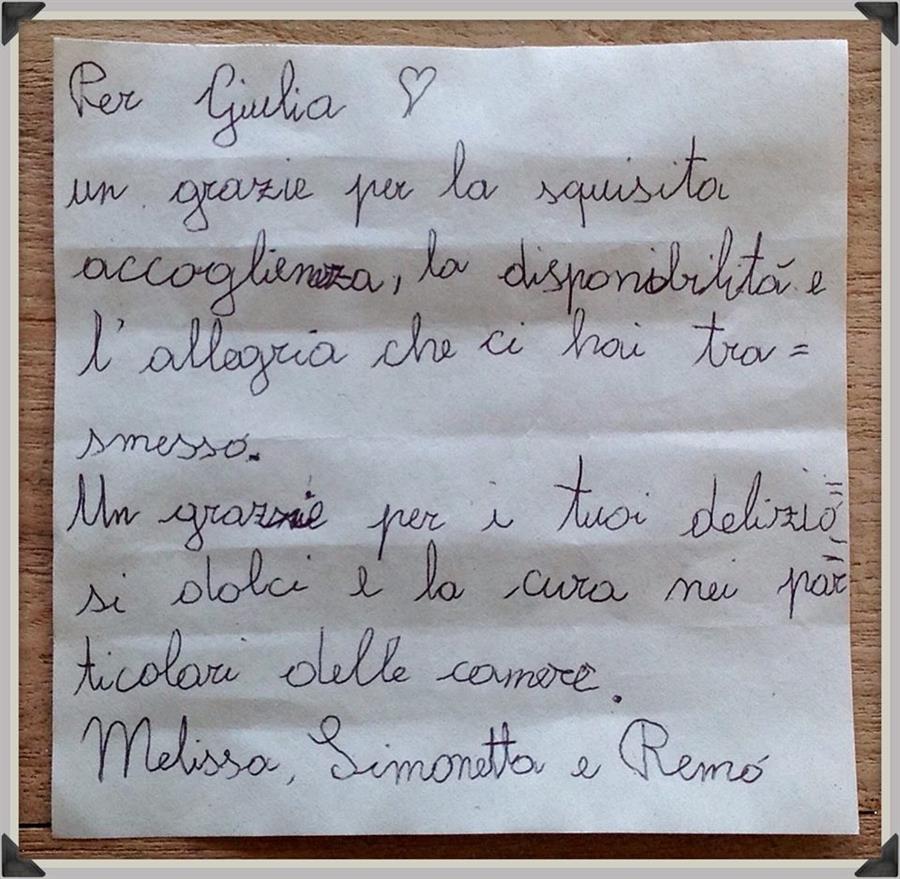 Per Giulia ♡
un grazie per la squisita
accoglienza, la disponibilità e
l'allegria che ci hai tra=
smesso.
Un grazie per i tuoi delizio=
si dolci e la cura nei par=
ticolari delle camere.
Melissa, Simonetta e Remo